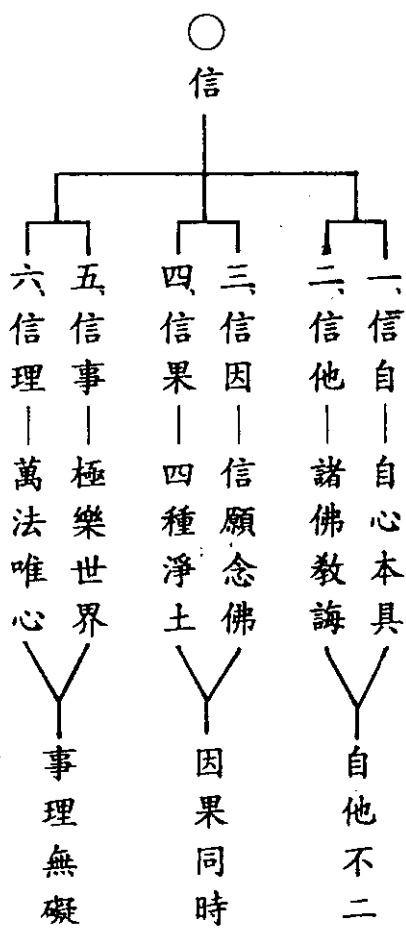 ○
信
一、信自—自心本具
二、信他—諸佛教誨
自他不二
三、信因—信願念佛
四、信果—四種淨土
因果同時
五、信事—極樂世界
六、信理—萬法唯心
事理無礙